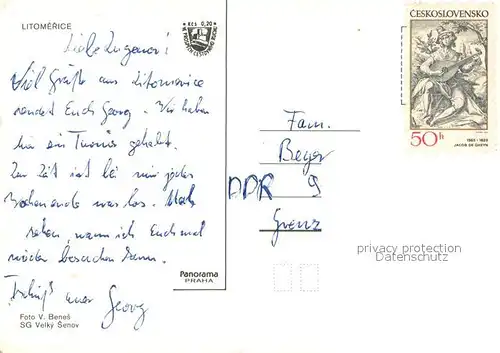 LITOMĚŘICE
Kčs 0,20
ČESKOSLOVENSKO
Liebe
Viel Grüße aus Litomerice
sendet Euch Georg. Wir haben
hier ein Turnier gehabt.
Zur Zeit ist bei mir jedes
Wochenende was los. Mal
sehen, wann ich Euch mal
wieder besuchen kann.
Tschüß euer Georg
50h
1565 • 1629
JACOB DE GHEYN
Fam.
Beyer
DDR 9
Grenz
privacy protection
Datenschutz
Panorama
PRAHA
Foto V. Beneš
SG Velký Šenov